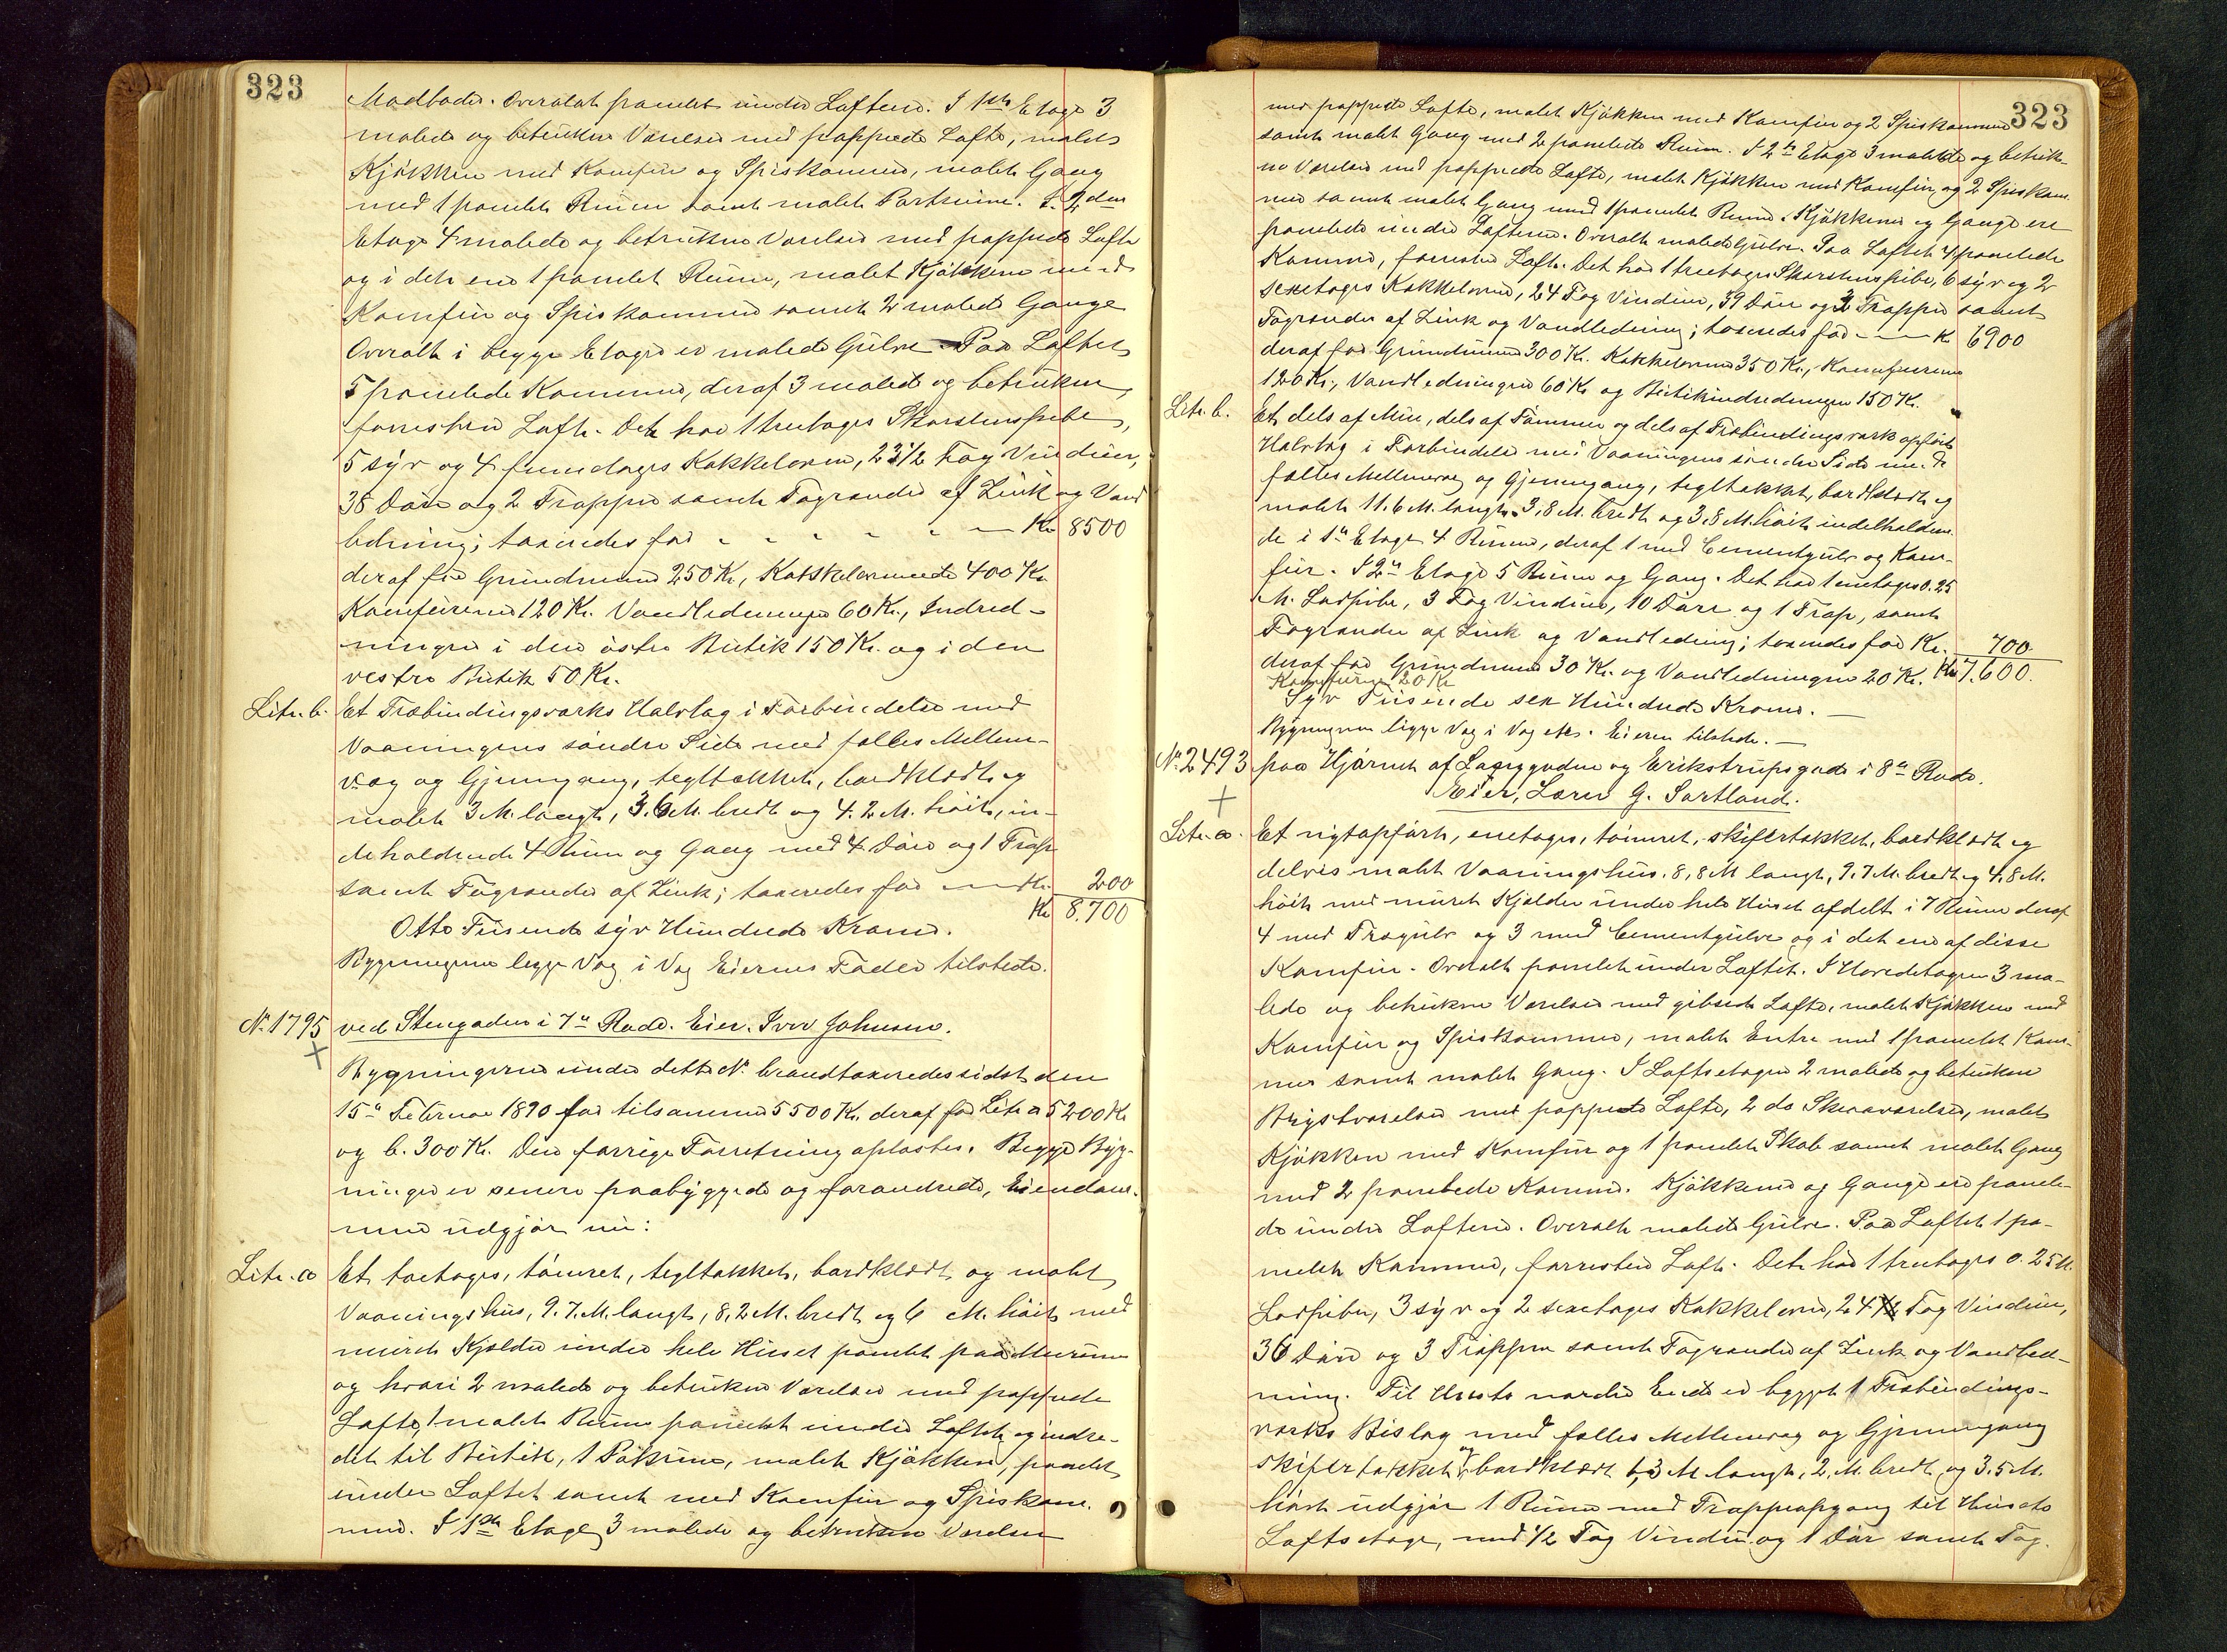 323
Madboder. Overalat panelet under Lofterne. I 1ste Etage 3
malede og betrukne Værelser med pappede Lofte, malet
Kjøkken med Komfur og Spiskammer, malet Gang
med 1 panelet Ruum samt malet Portruum. I 2den
Etage 4 malede og betrukne Værelser med pappede Lofte
og i det ene 1 panelet Ruum, malet Kjøkken med
Komfur og Spiskammer samt 2 malede Gange
Overalt i begge Etager er malede Gulve. Paa Loftet
5 panelede Kammere, deraf 3 malede og betrukne,
forresten Loft. Det har 1 treetages Skorstenspibe,
5 syv og 4 femetages Kakkelovne, 23 1/2 Fag Vinduer,
38 Døre og 2 Trapper samt Tagrender af Zink og Vand
ledning; taxeredes for - - - - - Kr 8500
deraf for Grundmuren 250 Kr, Kakkelovnene 400 Kr.
Komfurerne 120 Kr. Vandledningen 60 Kr., Indred-
ningen i den østre Butik 150 Kr. og i den
vestre Butik 50 Kr.
Litr. b. Et Træbindingsværks Halvtag i Forbindelse med
Vaaningens søndre Side med fælles Mellem-
væg og Gjennemgang, tegltækket, bordklædt og
malet 3 M. langt, 3.6 M. bredt og 4.2 M. høit, in-
deholdende 4 Rum og Gang med 4 Døre og 1 Trap
samt Tagrender af Zink; taxeredes for — Kr. 200
Kr 8.700
Otte Tusende syv Hundrede Kroner.
Bygningerne ligge Væg i Væg Eierens Fader tilstede.
No. 1795 ved Stengaden i 7de Rode. Eier. Iver Johnsen.
Bygningerne under dette No. brandtaxeredes sidst den
15de Februar 1890 for tilsammen 5500 Kr. deraf for Litr a 5200 Kr
og b. 300 Kr. Den forrige Forretning oplæstes. Begge Byg-
ninger er senere paabyggede og forandrede, Eiendom-
men udgjør nu:
Litr. a Et toetages, tømret, tegltækket, bordklædt og malet
Vaaningshus, 9.7 M. langt, 8,2 M. bredt og 6 M. høit med
muret Kjælder under hele Huset panelet paa Murene
og hvori 2 malede og betrukne Værelser med pappede
Lofte, 1 malet Rum panelet under Loftet og indre-
det til Butik, 1 Pakrum, malet Kjøkken, panelet
under Loftet samt med Komfur og Spiskam-
mer. I 1ste Etage 3 malede og betrukne Værelser
323
med pappede Lofte, malet Kjøkken med Komfur og 2 Spiskammere
samt malet Gang med 2 panelede Ruum. I 2de Etage 3 malede og betruk-
ne Værelser med pappede Lofte, malet Kjøkken med Komfur og 2 Spiskam-
mer samt malet Gang med 1 panelet Ruum. Kjøkkener og Gange ere
panelede under Lofterne. Overalt malede Gulve. Paa Loftet 4 panelede
Kammere, forresten Loft. Det har 1 treetages Skorstenspibe, 6 syv og 2
sexetages Kakkelovne, 24 Fag Vinduer, 39 Døre og 3 Trapper samt
Tagrender af Zink og Vandledning; taxeredes for — — Kr 6900
deraf for Grundmuren 300 Kr. Kakkelovnene 350 Kr., Komfurerne
120 Kr., Vandledningen 60 Kr og Butikindredningen 150 Kr.
Litr. b. Et dels af Mur, dels af Tømmer og dels af Træbindingsværk opført
Halvtag i Forbindelse med Vaaningens søndre Side med
fælles Mellemvæg og Gjennemgang, tegltækket, bordklædt og
malet 11.6 M. langt, 3,8 M. bredt og 3,8 M. høit indeholden-
de i 1ste Etage 4 Rum, deraf 1 med Cementgulv og Kom-
fur. I 2de Etage 5 Rum og Gang. Det har 1 enetages 0.25
M. Lodpibe, 3 Fag Vinduer, 10 Døre og 1 Trap, samt
Tagrender af Zink og Vandledning; taxeredes for Kr. 700
deraf for Grundmuren 30 Kr. og Vandledningen 20 Kr. Kr 7.600.
Komfuren 20 Kr
Syv Tusende sex Hundrede Kroner. —
Bygningerne ligge Væg i Væg etc. Eieren tilstede. —
No. 2493 paa Hjørnet af Laxegaden og Erikstrupsgade i 8de Rode.
Eier, Lars G. Sartland.
Litr. a. Et nytopført, enetages, tømret, skifertækket, bordklædt og
delvis malet Vaaningshus. 8,8 M langt, 9.7 M. bredt og 4.8 M.
høit med muret Kjælder under hele Huset afdelt i 7 Rum deraf
4 med Trægulv og 3 med Cementgulve og i det ene af disse
Komfur. Overalt panelet under Loftet. I Hovedetagen 3 ma-
lede og betrukne Værelser med gibsede Lofte, malet Kjøkken med
Komfur og Spiskammer, malet Entre med 1 panelet Kam-
mer samt malet Gang. I Loftsetagen 2 malede og betrukne
Brystværelser med pappede Lofte, 2 do Skraaværelser, malet
Kjøkken med Komfur og 1 panelet Skab samt malet Gang
med 2 panelede Kammere. Kjøkkener og Gange ere panele-
de under Lofterne. Overalt malede Gulve. Paa Loftet 1 pa-
nelet Kammer, forresten Loft. Det har 1 treetages 0.25 M.
Lodpibe, 3 syv og 2 sexetages Kakkelovne, 24 Fag Vinduer,
36 Døre og 3 Trapper samt Tagrender af Zink og Vandled-
ning. Til Husets nordre Ende er bygget 1 Træbindings-
værks Bislag med fælles Mellemvæg og Gjennemgang
skifertækket og bordklædt 1,3 M langt, 2 M. bredt og 3.5 M.
høit udgjør 1 Rum med Trappeopgang til Husets
Loftsetage, med 1/2 Fag Vindu og 1 Dør samt Tag-